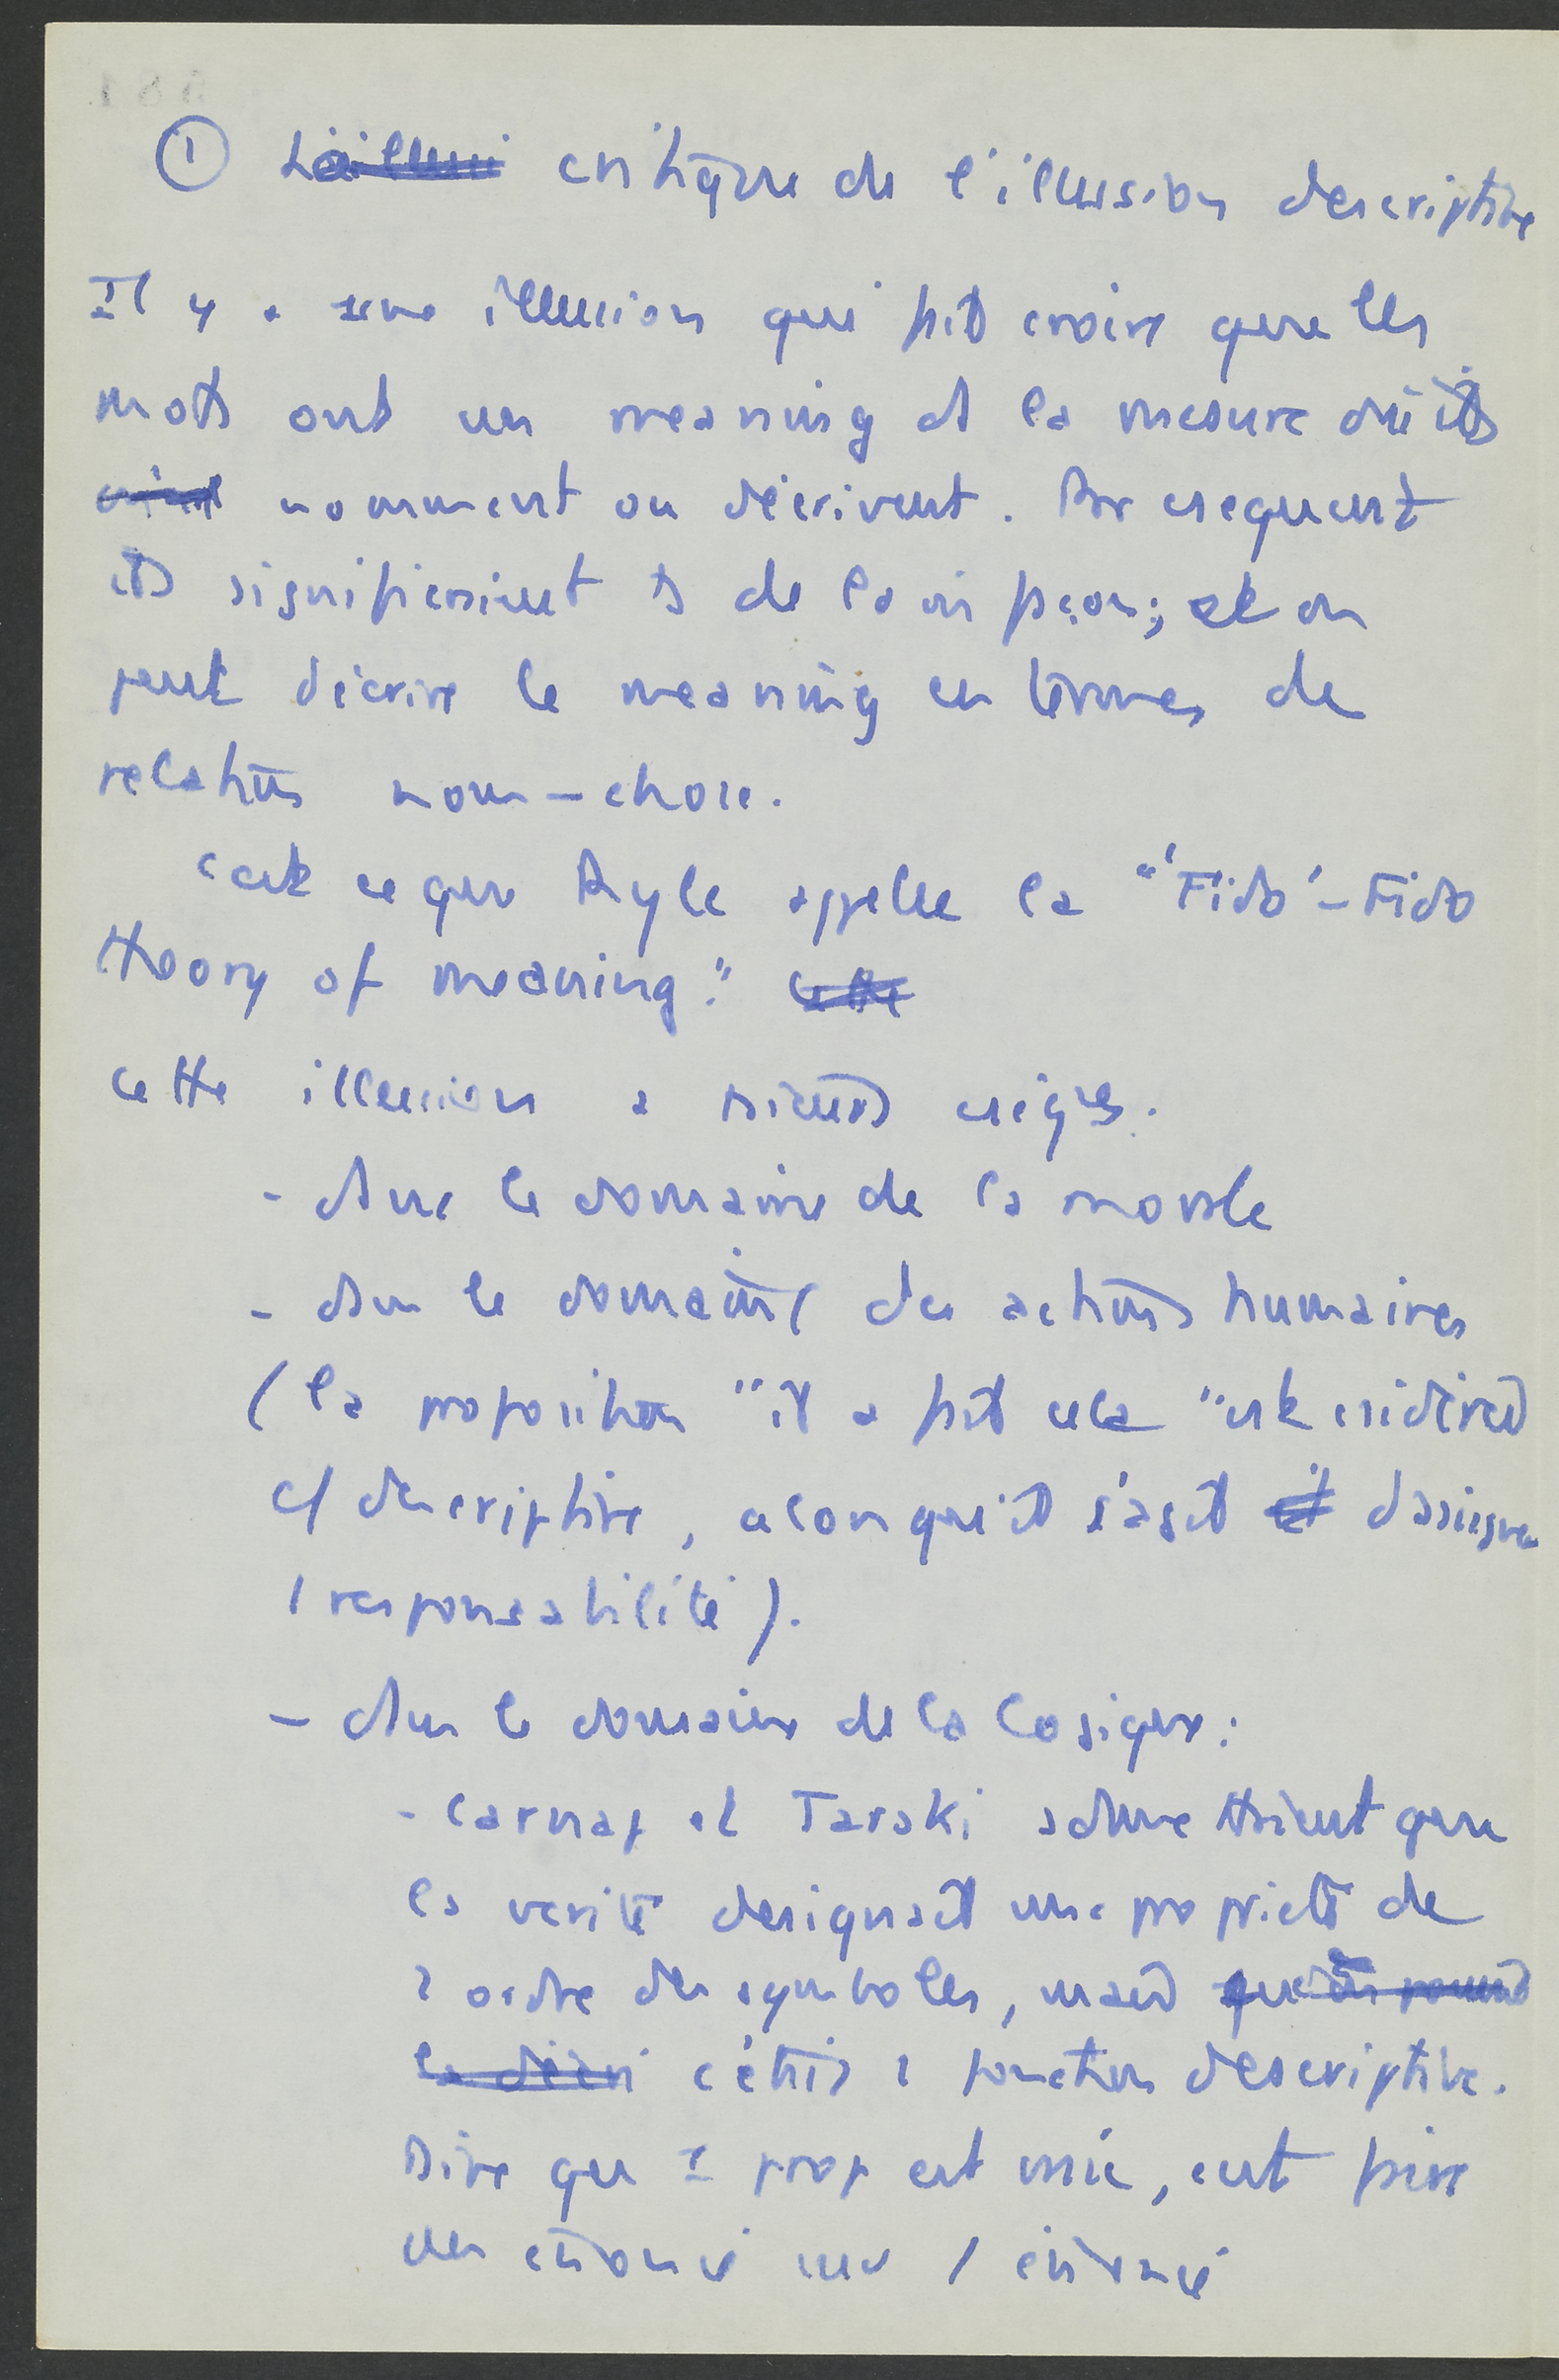 ① L'a illusi critique de l'illusion descriptive
Il y a une illusion qui fait croire que les
mots ont un meaning ds la mesure où ils
nomment ou décrivent. Par csequent
ils signifieraient ts de la m façon; et on
peut décrire le meaning en termes de
relation nom-chose.
c'est ce que Ryle appelle la "'Fido'-Fido
theory of meaning". Cette
cette illusion a plusieurs
- dans le domaine de la morale
- dans le domaine des actions humaines
(la proposition "il a fait cela" est csidérée
c/ descriptive, alors qu'il s'agit d'assigner
1 responsabilité).
- dans le domaine de la logique:
- Carnap et Tarski admettaient que
la verité designait une propriété de
l'ordre des symboles, mais que
c'était 1 fonction descriptive.
Dire que 1 prop est vraie, c'est faire
un énoncé sur 1 énoncé